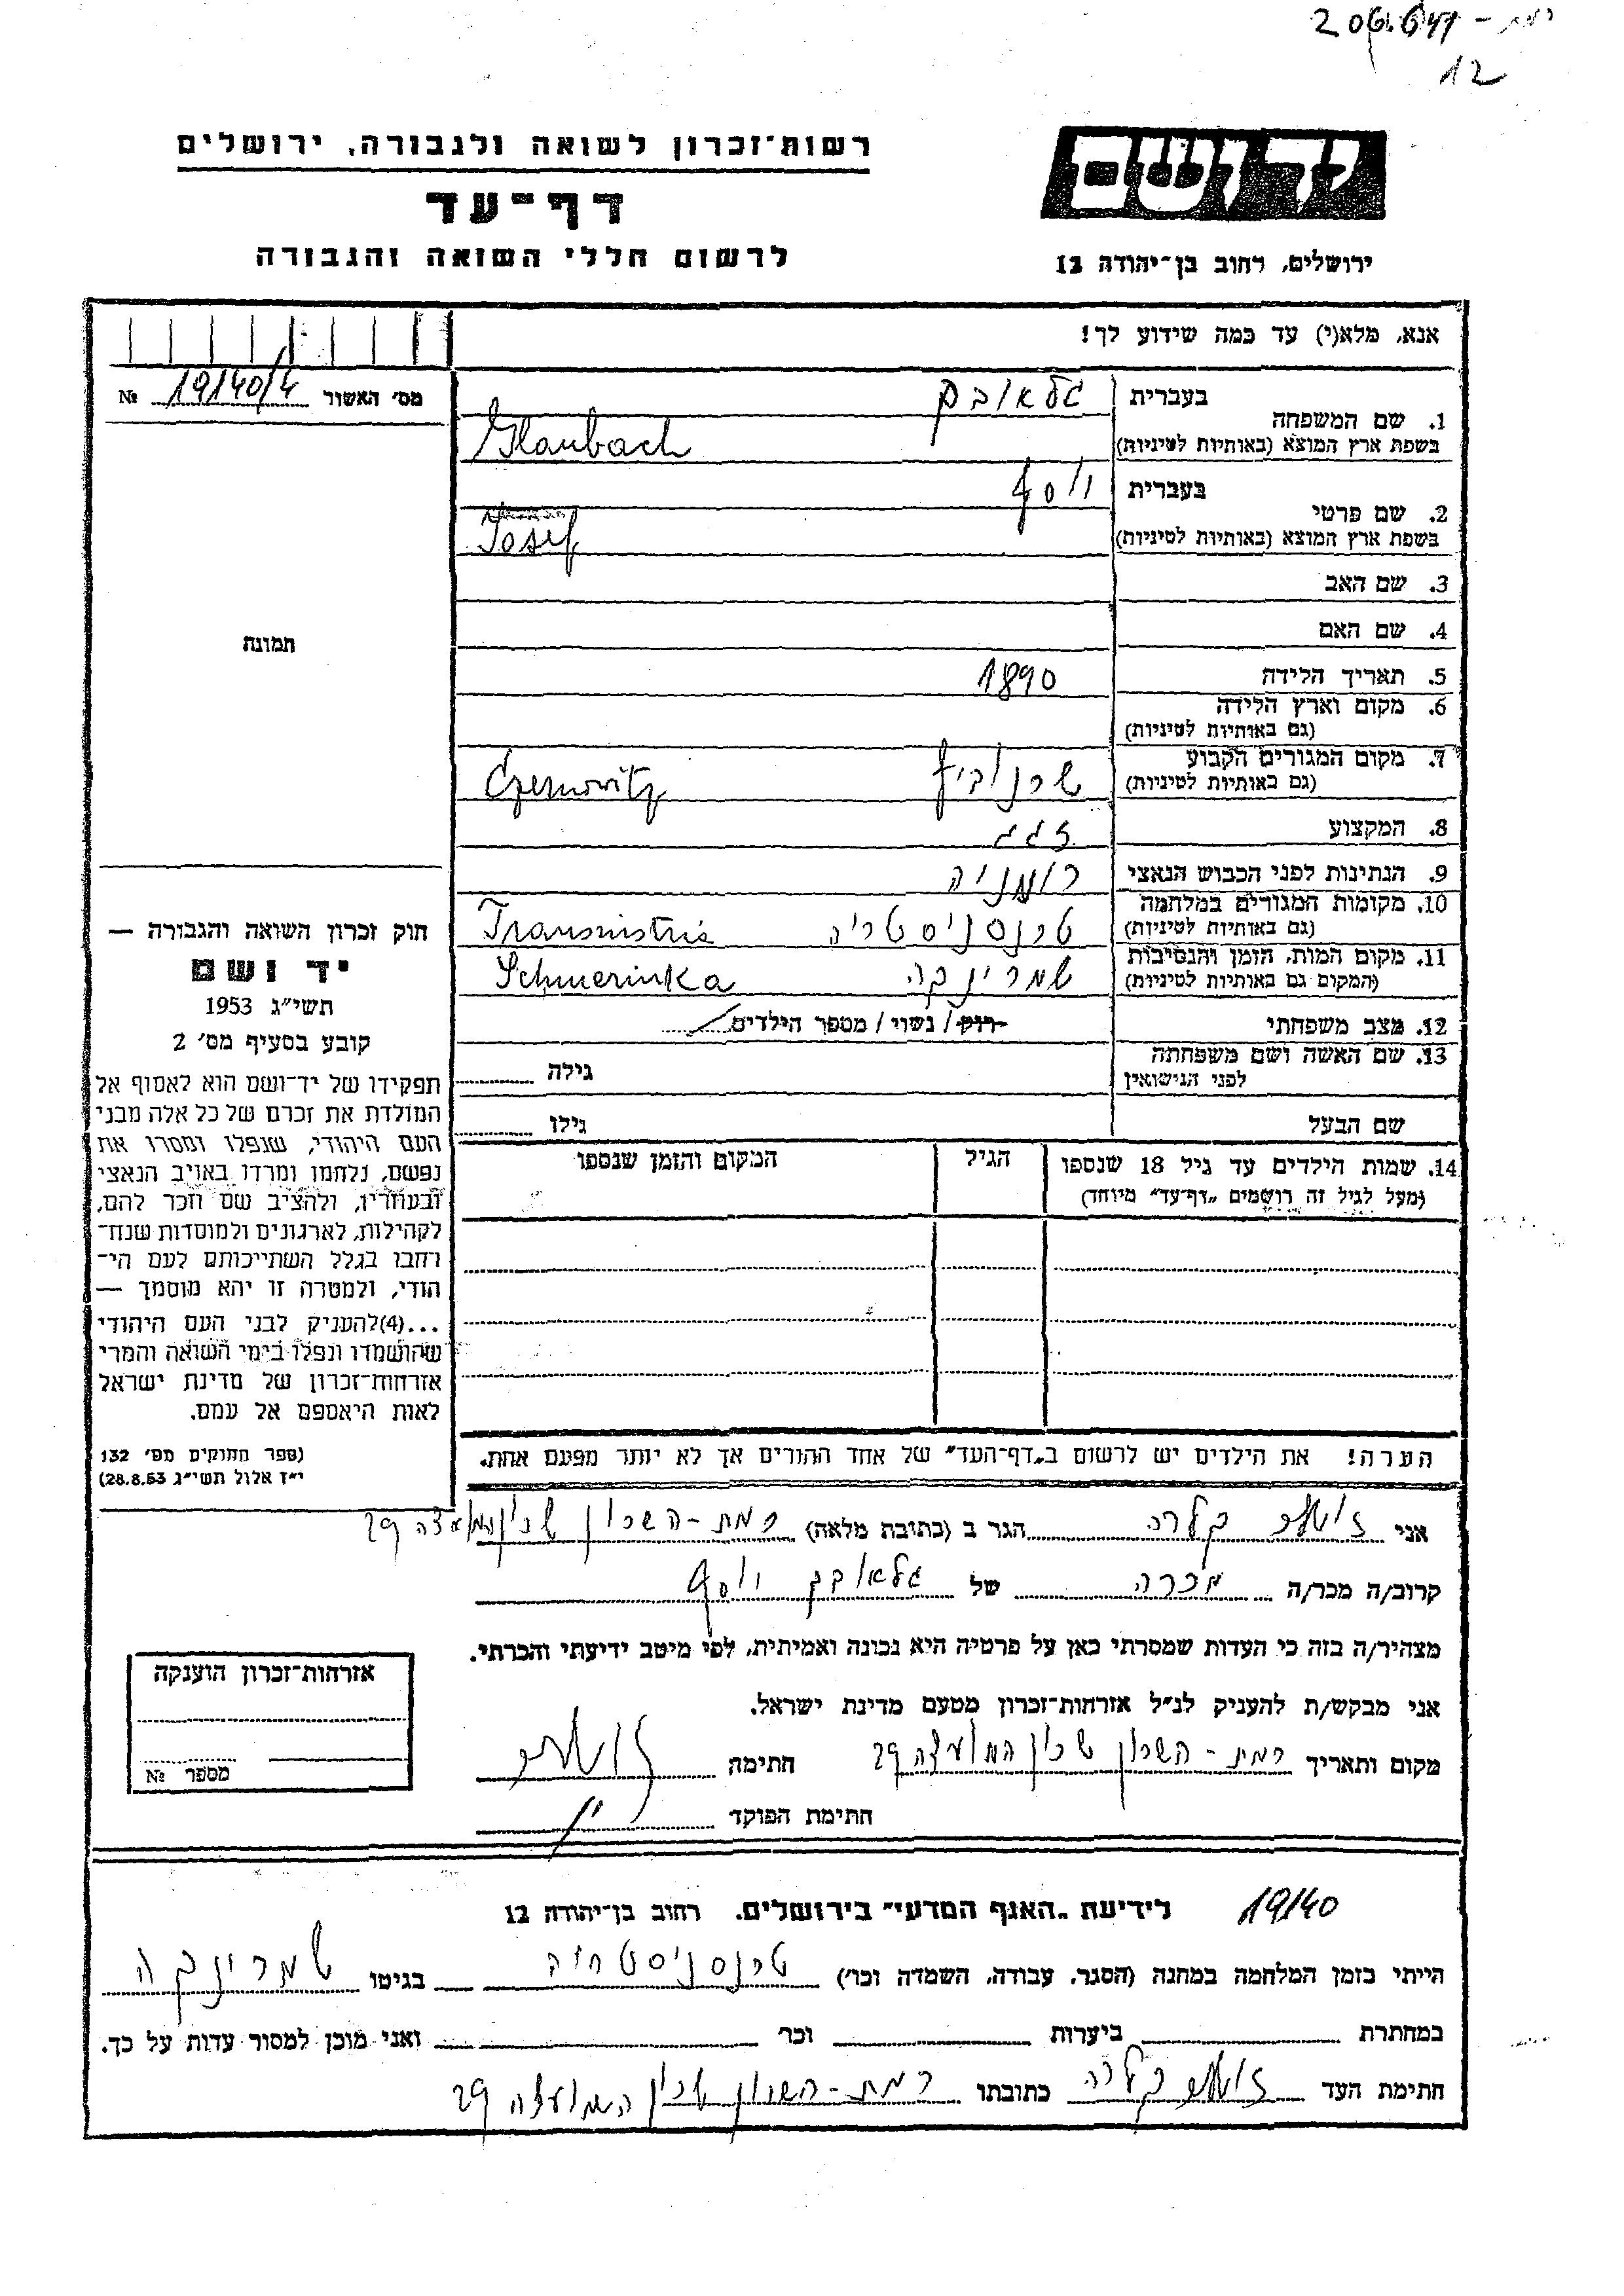 206.641 - רמת
12
רשות־זכרון לשואה ולגבורה, ירושלים
דף־עד
לרשום חללי השואה והגבורה
יד ושם
ירושלים, רחוב בן־יהודה 12
אנא, מלא(י) עד כמה שידוע לך!
מס׳ האשור 19140/4 №
1. שם המשפחה
בעברית גלאובך
בשפת ארץ המוצא (באותיות לטיניות) Glaubach
2. שם פרטי
בעברית יוסף
בשפת ארץ המוצא (באותיות לטיניות) Iosef
3. שם האב
4. שם האם
5. תאריך הלידה 1890
6. מקום וארץ הלידה
(גם באותיות לטיניות)
7. מקום המגורים הקבוע
(גם באותיות לטיניות) שרנוביץ Czernovitz
8. המקצוע זגג
9. הנתינות לפני הכבוש הנאצי רומניה
10. מקומות המגורים במלחמה
(גם באותיות לטיניות) טרנסניסטריה Transnistria
11. מקום המות, הזמן והנסיבות
(המקום גם באותיות לטיניות) שמרינקה Schmerinka
12. מצב משפחתי רווק / נשוי / מספר הילדים
13. שם האשה ושם משפחתה
לפני הנישואין
גילה
שם הבעל
גילו
14. שמות הילדים עד גיל 18 שנספו
(מעל לגיל זה רושמים „דף־עד" מיוחד)
הגיל
המקום והזמן שנספו
הערה! את הילדים יש לרשום ב„דף־העד" של אחד ההורים אך לא יותר מפעם אחת.
תמונה
חוק זכרון השואה והגבורה —
יד ושם
תשי״ג 1953
קובע בסעיף מס׳ 2
תפקידו של יד־ושם הוא לאסוף אל
המולדת את זכרם של כל אלה מבני
העם היהודי, שנפלו ומסרו את
נפשם, נלחמו ומרדו באויב הנאצי
ובעוזריו, ולהציב שם וזכר להם,
לקהילות, לארגונים ולמוסדות שנח־
רחבו בגלל השתייכותם לעם הי־
הודי, ולמטרה זו יהא מוסמך —
...(4)להעניק לבני העם היהודי
שהושמדו ונפלו בימי השואה והמרי
אזרחות־זכרון של מדינת ישראל
לאות היאספם אל עמם.
(ספר החוקים מס׳ 132
י״ז אלול תשי״ג 28.8.53)
אני קלרה הגר ב (כתובת מלאה) רמת-השרון שכון המועצה 29
קרוב/ה מכר/ה מכרה של גלאובך יוסף
מצהיר/ה בזה כי העדות שמסרתי כאן על פרטיה היא נכונה ואמיתית, לפי מיטב ידיעתי והכרתי.
אני מבקש/ת להעניק לנ״ל אזרחות־זכרון מטעם מדינת ישראל.
מקום ותאריך רמת-השרון שכון המועצה 29 חתימה
חתימת הפוקד
אזרחות־זכרון הוענקה
מספר №
19140 לידיעת „האגף המדעי" בירושלים. רחוב בן־יהודה 12
הייתי בזמן המלחמה במחנה (הסגר, עבודה, השמדה וכו׳) טרנסניסטריה בגיטו שמרינקה
במחתרת ביערות וכו׳ ואני מוכן למסור עדות על כך.
חתימת העד קלרה כתובתו רמת-השרון שכון המועצה 29